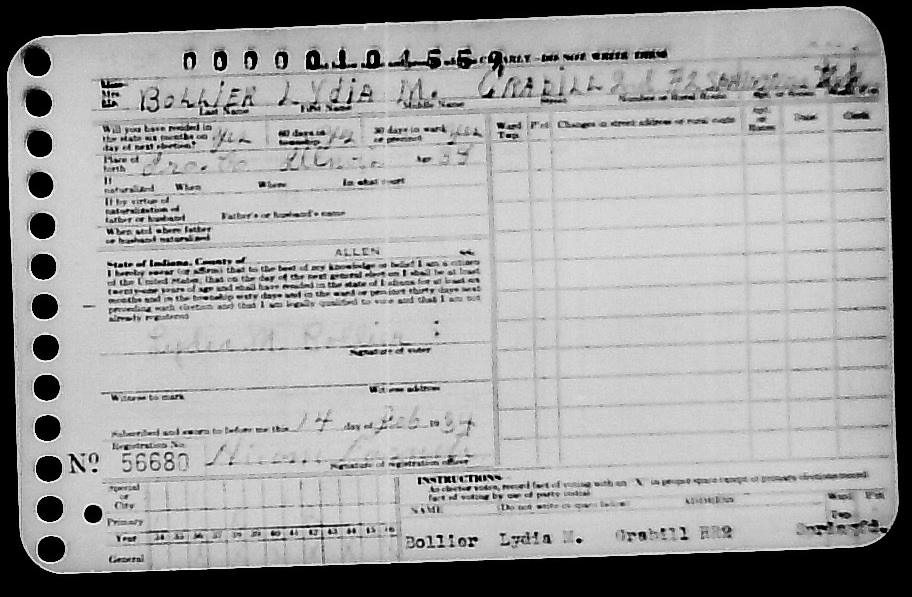 00000104559
CLEARLY - DO NOT WRITE THESE
Miss
Mrs.
Mr. BOLLIER LYdIA M. GRABILL
Last Name First Name Middle Name Street Number or Rural Route
Will you have resided in the state six months on day of next election? yes 60 days in township yes 30 days in ward or precinct yes
Ward Twp. P'ct Changes in street address or rural route Apt. or Rooms Date Clerk
Place of birth Age
If naturalized When Where In what court
If by virtue of naturalization of father or husband Father's or husband's name
When and where father or husband naturalized
State of Indiana, County of ALLEN ss.
I hereby swear (or affirm) that to the best of my knowledge or belief I am a citizen
of the United States; that on the day of the next general election I shall be at least
twenty-one years of age and shall have resided in the state of Indiana for at least six
months and in the township sixty days and in the ward or precinct thirty days next
preceding such election and that I am legally qualified to vote and that I am not
already registered
Lydia M. Bollier
Signature of voter
Witness to mark Witness address
Subscribed and sworn to before me this 14 day of Feb 1934
Registration No.
Nº 56680 Hiram
Signature of registration officer
Special or City
Primary
Year 34 35 36 37 38 39 40 41 42 43 44 45 46
General
INSTRUCTIONS
As elector votes, record fact of voting with an "X" in proper space except at primary elections record
fact of voting by use of party initial
NAME (Do not write in space below) ADDRESS Ward Twp. P'ct
Bollier Lydia M. Grabill RR2